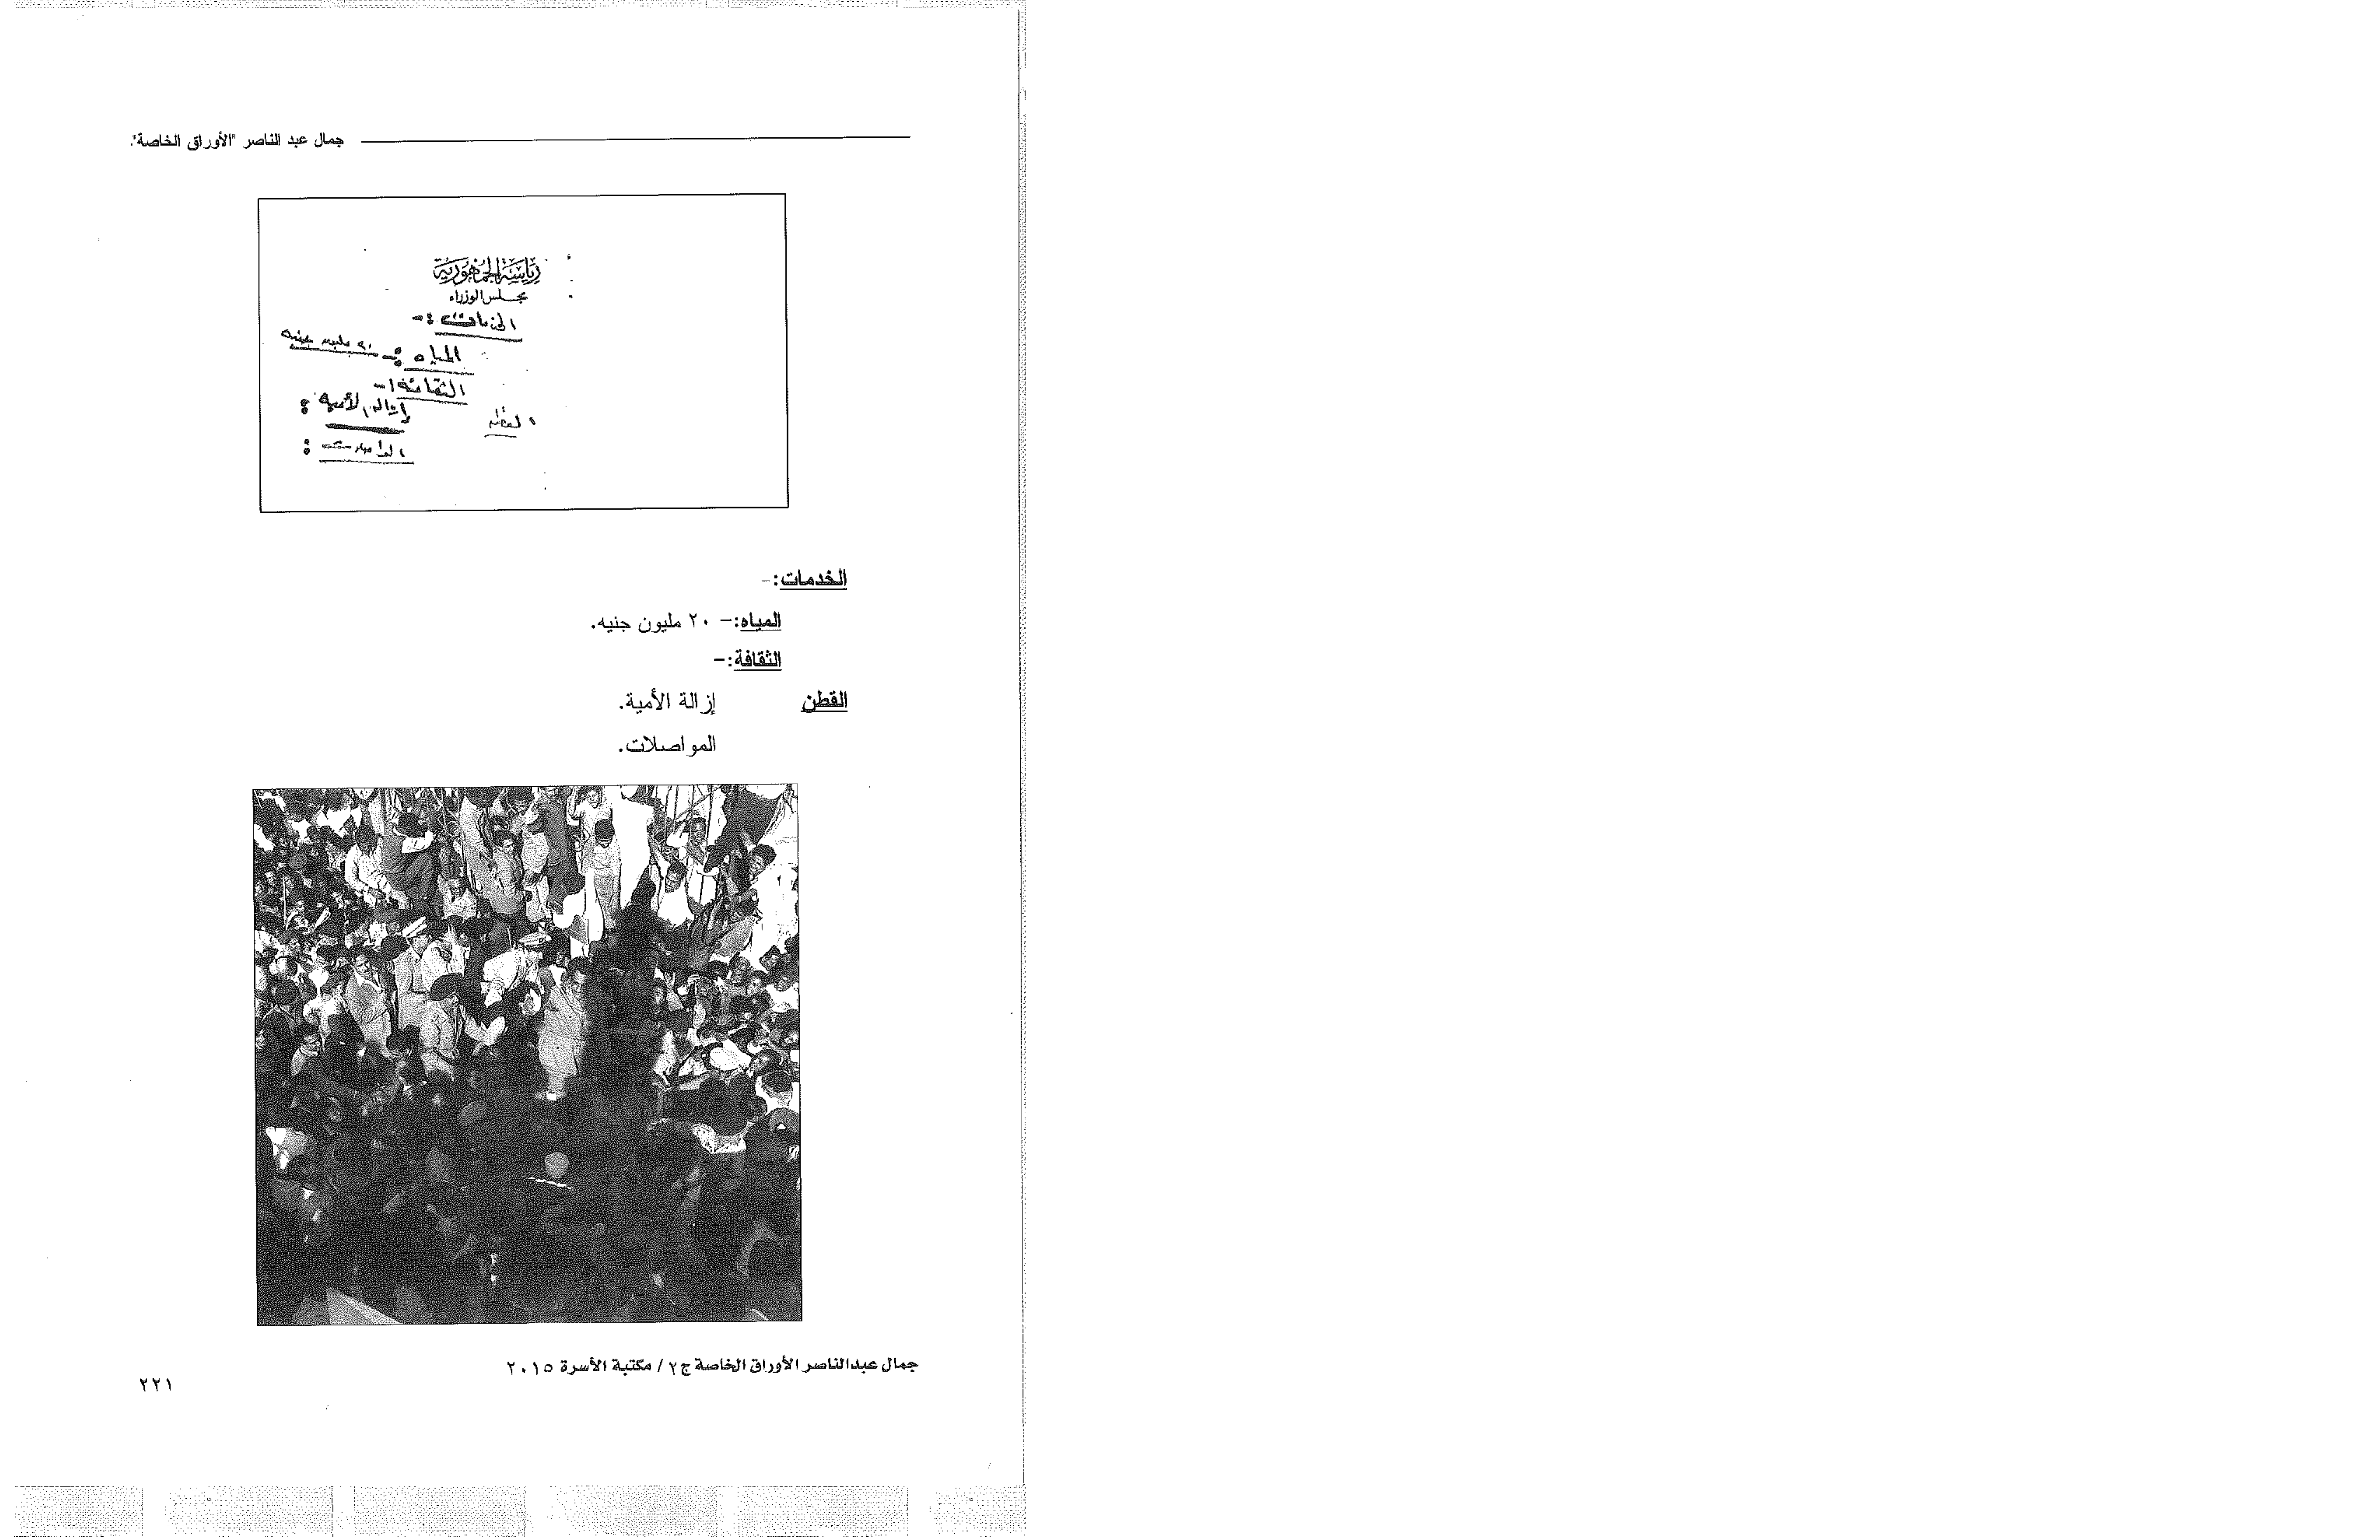 جمال عبد الناصر "الأوراق الخاصة".
رياسة الجمهورية
مجلس الوزراء
الخدمات :-
المياه :- ٢٠ مليون جنيه
الثقافة :-
القطن إزالة الأمية :
المواصلات :
الخدمات:-
المياه:- ٢٠ مليون جنيه.
الثقافة:-
القطن إزالة الأمية.
المواصلات.
جمال عبدالناصر الأوراق الخاصة ج٢ / مكتبة الأسرة ٢٠١٥
٢٢١